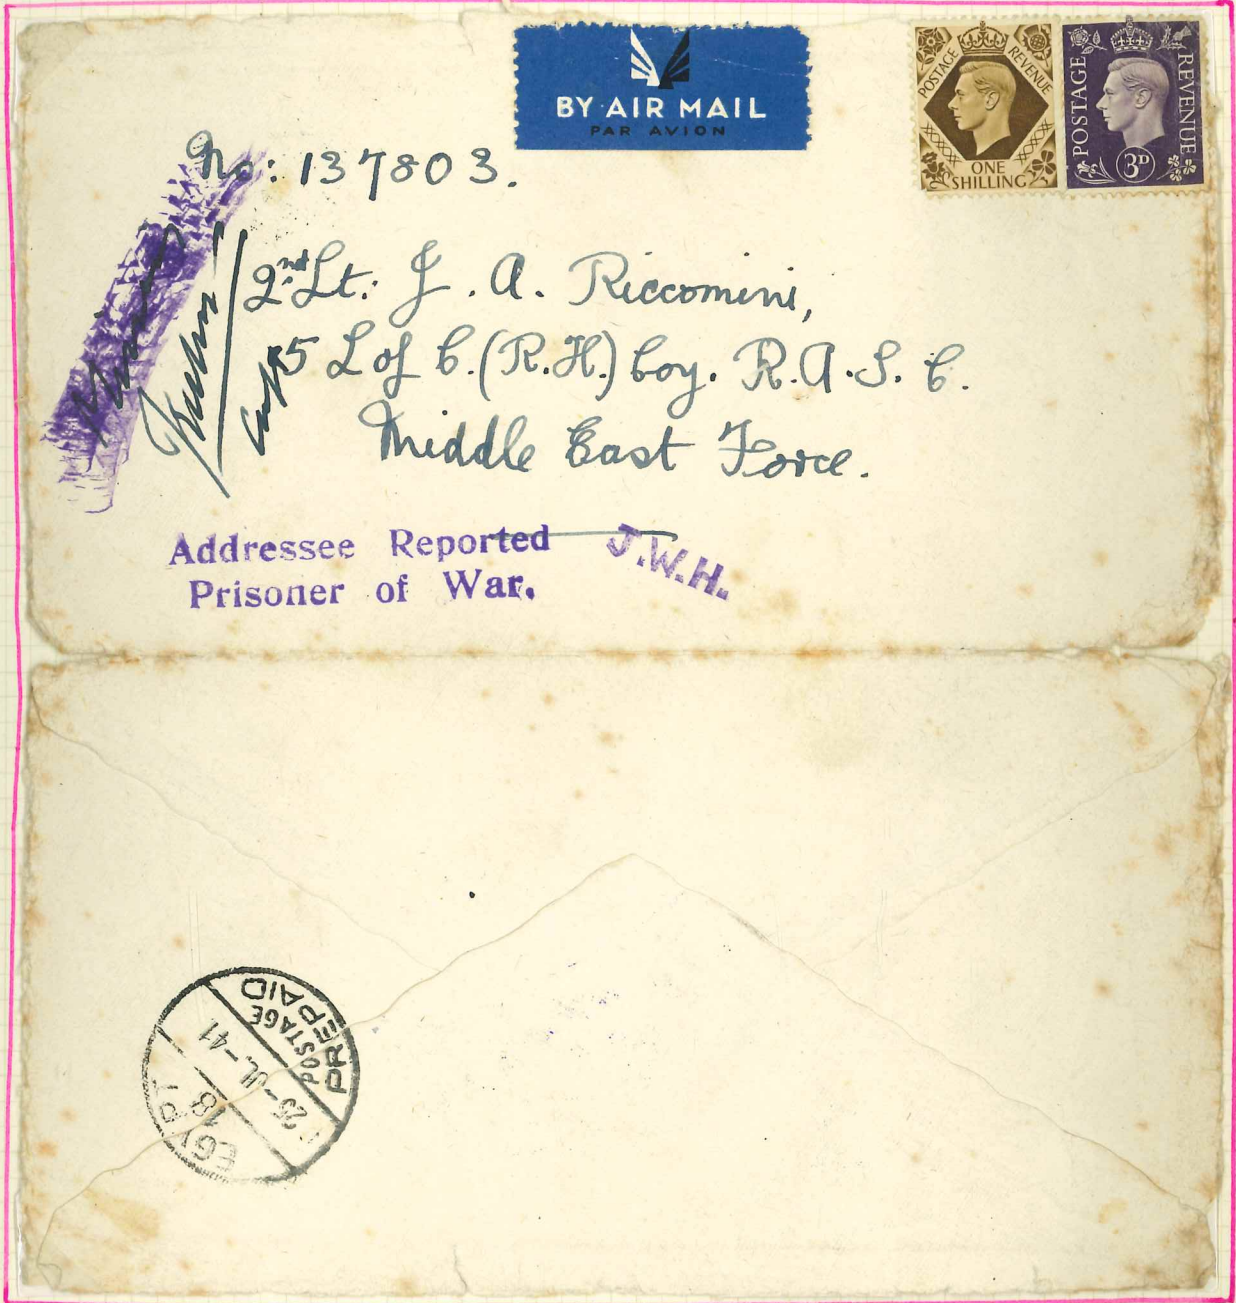 BY AIR MAIL
PAR AVION
POSTAGE REVENUE
ONE
SHILLING
POSTAGE REVENUE
3D
No: 137803.
2nd Lt. J. A. Riccomini,
5 L of C. (R.H.) Coy. R.A.S.C.
Middle East Force.
Addressee Reported
Prisoner of War.
J.W.H.
POSTAGE
PREPAID
25-JL-41
18
EGYPT